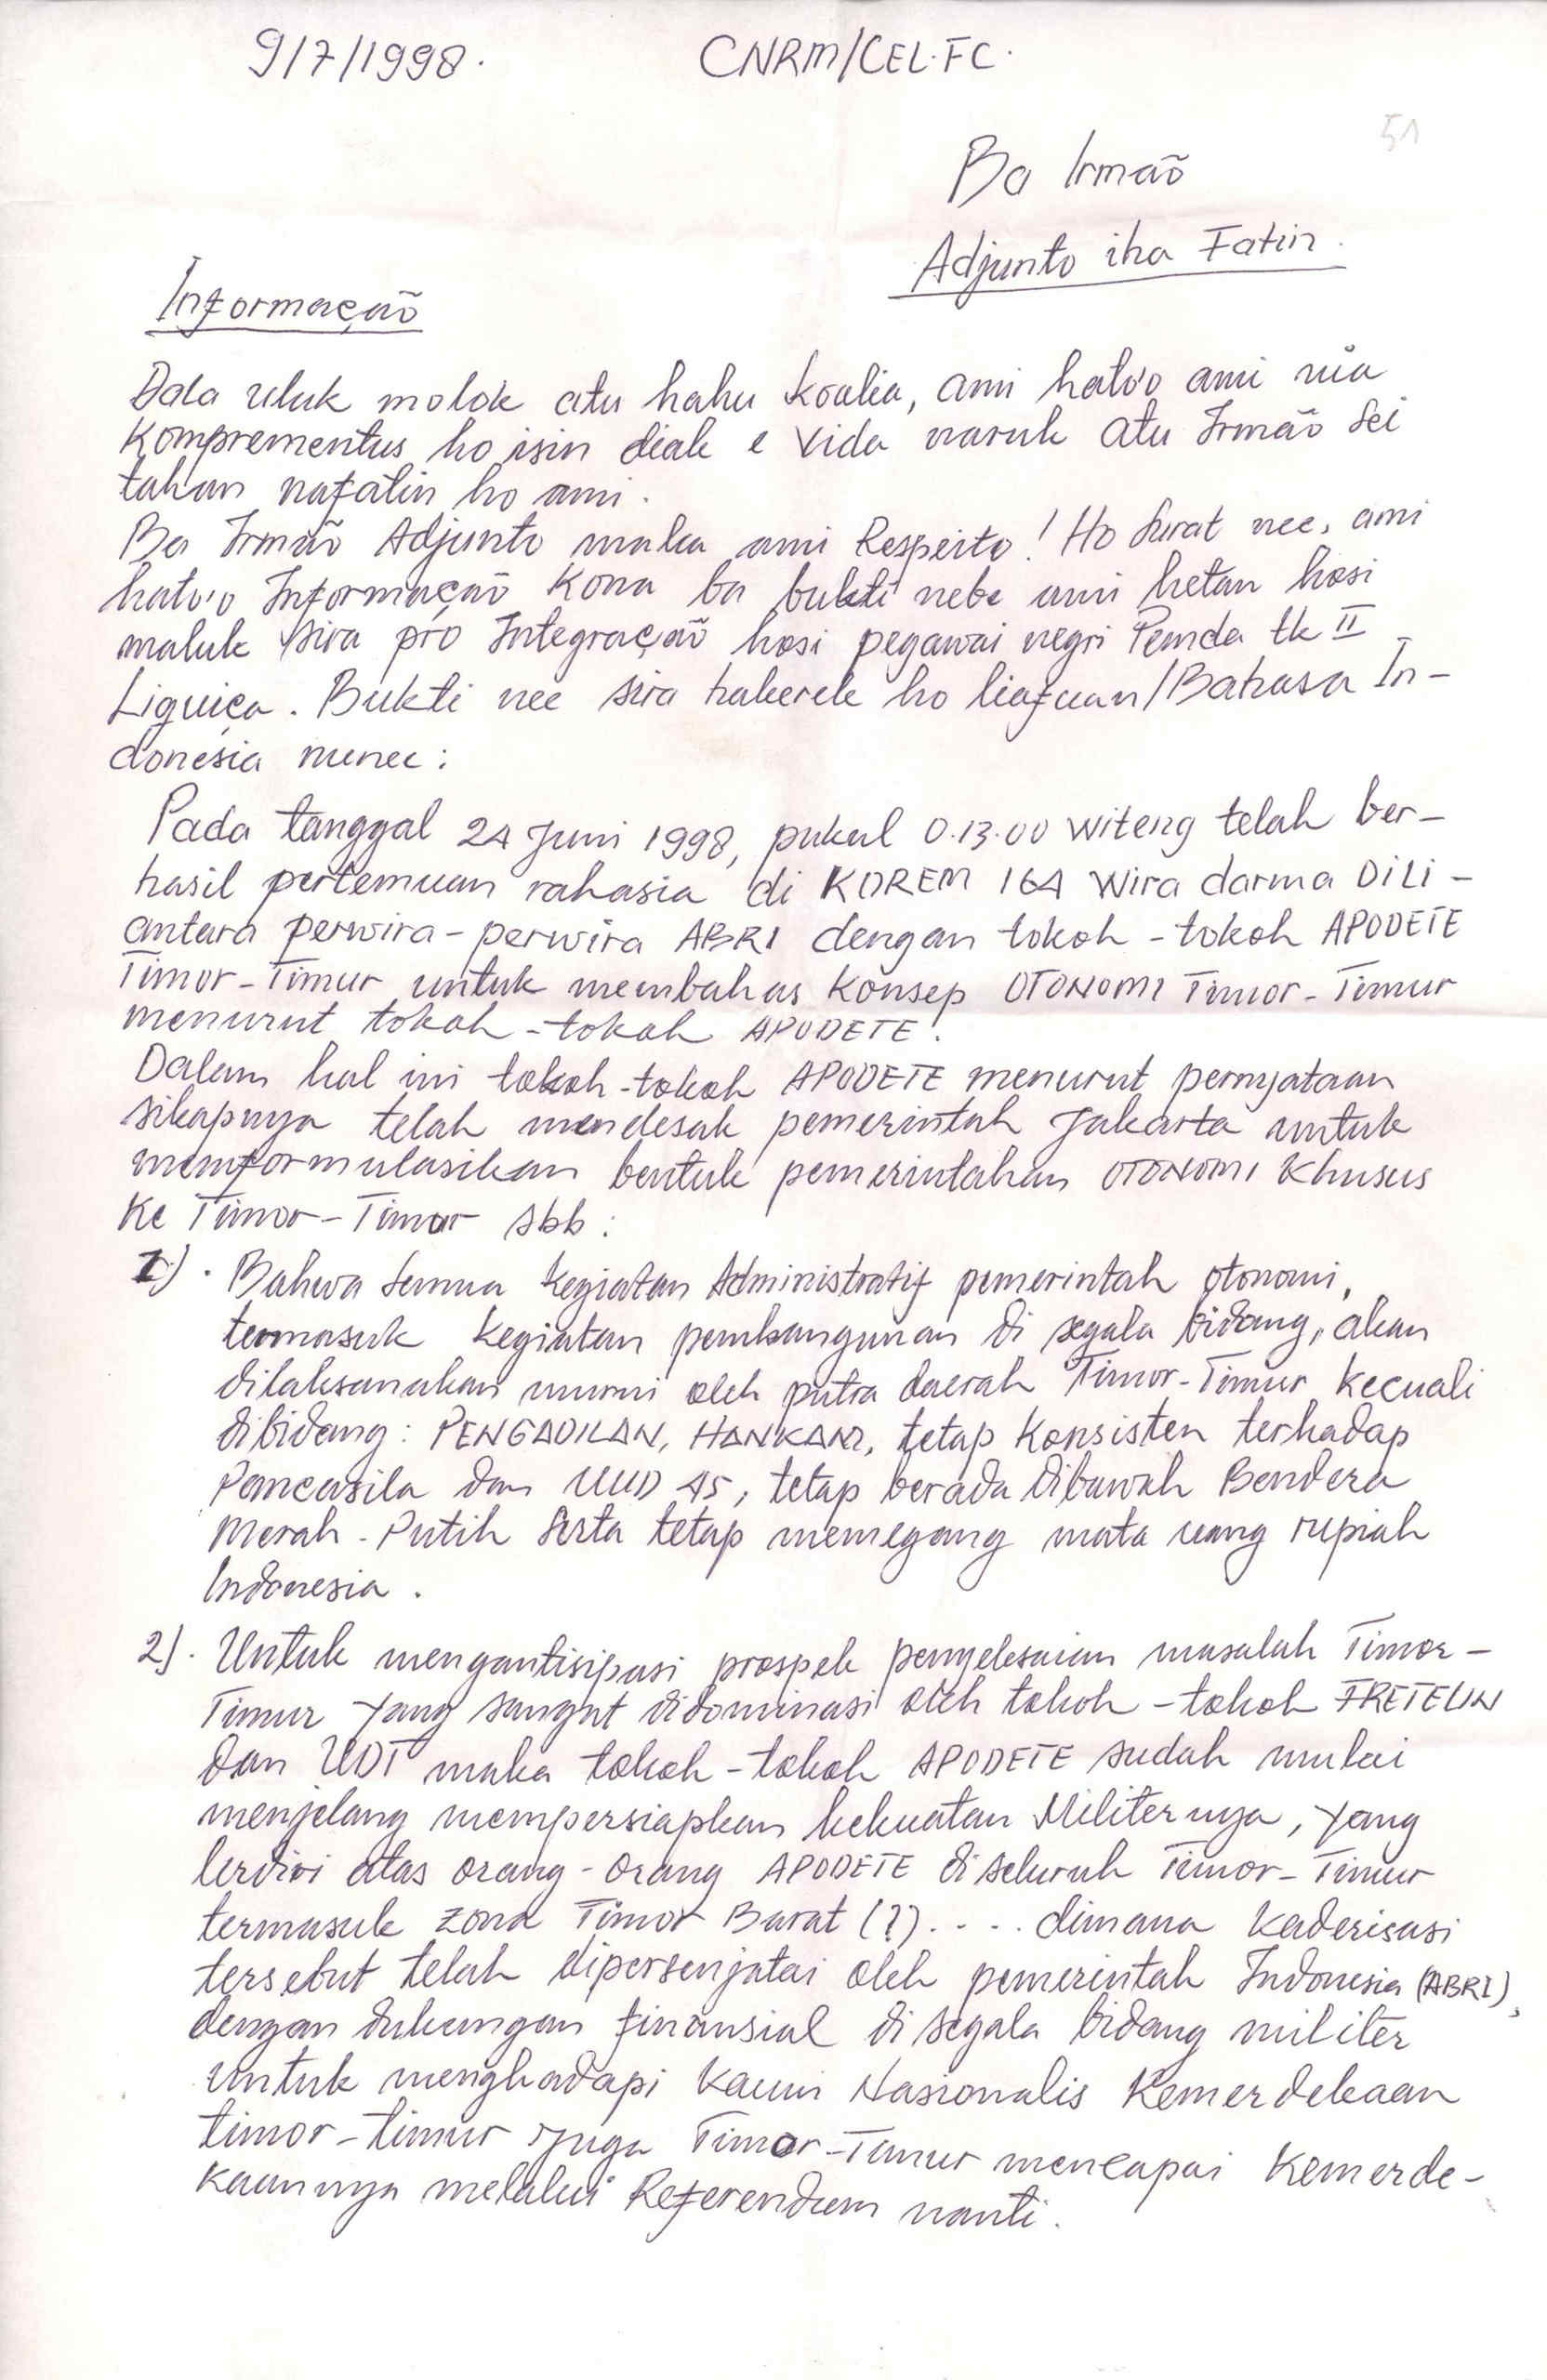 9/7/1998. CNRM/CEL.FC.
51
Ba Irmaõ
Adjunto iha Fatin.
Informaçaõ
Dala uluk molok atu hahu koalia, ami hato'o ami nia
Komprementus ho isin diak e vida naruk atu Irmaõ sei
tahan nafatin ho ami.
Ba Irmaõ Adjunto maka ami Respeito! Ho surat nee, ami
hato'o Informaçaõ kona ba bukti nebe ami hetan hosi
maluk sira pro Integraçaõ hosi pegawai negri Pemda tk II
Liquiça. Bukti nee sira hakerek ho liafuan/Bahasa In-
donesia nunee:
Pada tanggal 24 Juni 1998, pukul 0.13.00 witeng telah ber-
hasil pertemuan rahasia di KOREM 164 Wira darma DiLi -
antara perwira-perwira ABRI dengan tokoh-tokoh APODETE
Timor-Timur untuk membahas Konsep OTONOMI Timor-Timur
menurut tokoh-tokoh APODETE.
Dalam hal ini tokoh-tokoh APODETE menurut pernyataan
sikapnya telah mendesak pemerintah Jakarta untuk
memformulasikan bentuk pemerintahan OTONOMI Khusus
Ke Timor-Timur sbb:
1). Bahwa semua kegiatan Administratif pemerintah otonomi,
termasuk kegiatan pembangunan di segala bidang, akan
dilaksanakan murni oleh putra daerah Timor-Timur kecuali
dibidang: PENGADILAN, HANKAM, tetap Konsisten terhadap
Pancasila dan UUD 45, tetap berada dibawah Bendera
Merah-Putih serta tetap memegang mata uang rupiah
Indonesia.
2). Untuk mengantisipasi prospek penyelesaian masalah Timor-
Timur yang sangat didominasi oleh tokoh-tokoh FRETELIN
dan UDT maka tokoh-tokoh APODETE sudah mulai
menjelang mempersiapkan kekuatan Militernya, yang
terdiri atas orang-orang APODETE di seluruh Timor-Timur
termasuk zona Timor Barat (?).... dimana kaderisasi
tersebut telah dipersenjatai oleh pemerintah Indonesia (ABRI),
dengan dukungan finansial di segala bidang militer
untuk menghadapi kaum Nasionalis Kemerdekaan
timor-timur juga Timor-Timur mencapai Kemerde-
kaannya melalui Referendum nanti.